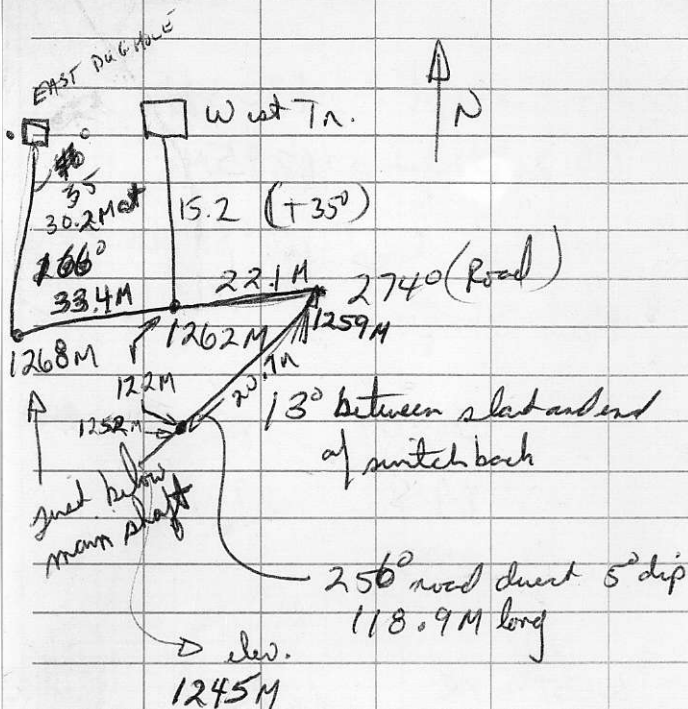 EAST DUG HOLE
West Tr.
N
35
30.2M at
15.2 (+35°)
266°
33.4M
22.1M
274° (Road)
1268M
1262M
1259M
12.2M
20.7M
1252M
13° between start and end
of switch back
just below
main shaft
256° road direct 5° dip
118.9M long
elev.
1245M